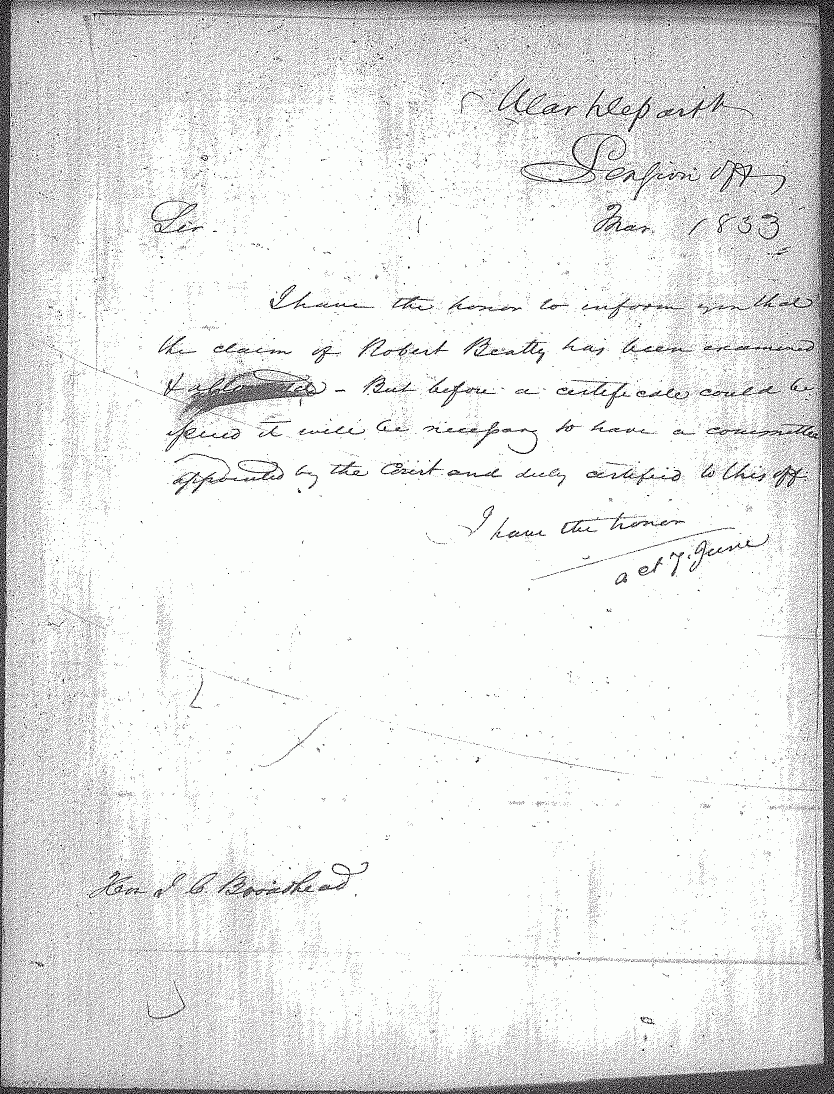 War Depart
Pension Off
Sir. Mar. 1833
I have the honor to inform you that
the claim of Robert Beatty has been examined
& allowed - But before a certificate could be
issued it will be necessary to have a committee
appointed by the Court and duly certified to this off.
I have the honor
act 7. June
Hon J C Broadhead